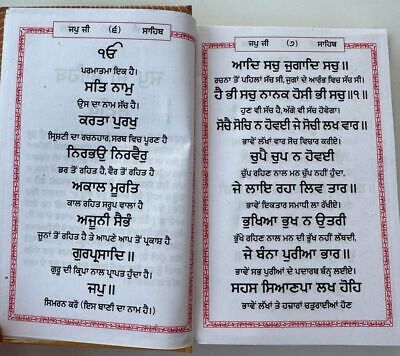 ਜਪੁ ਜੀ (੬) ਸਾਹਿਬ
ੴ
ਪਰਮਾਤਮਾ ਇਕ ਹੈ।
ਸਤਿ ਨਾਮੁ
ਉਸ ਦਾ ਨਾਮ ਸੱਚ ਹੈ।
ਕਰਤਾ ਪੁਰਖੁ
ਸ੍ਰਿਸ਼ਟੀ ਦਾ ਰਚਨਹਾਰ, ਸਰਬ ਵਿਚ ਪੂਰਣ ਹੈ
ਨਿਰਭਉ ਨਿਰਵੈਰੁ
ਡਰ ਤੋਂ ਰਹਿਤ ਹੈ, ਵੈਰ ਤੋਂ ਰਹਿਤ ਹੈ
ਅਕਾਲ ਮੂਰਤਿ
ਕਾਲ ਰਹਿਤ ਸਰੂਪ ਵਾਲਾ ਹੈ
ਅਜੂਨੀ ਸੈਭੰ
ਜੂਨਾਂ ਤੋਂ ਰਹਿਤ ਹੈ ਤੇ ਆਪਣੇ ਆਪ ਤੋਂ ਪ੍ਰਕਾਸ਼ ਹੈ
ਗੁਰਪ੍ਰਸਾਦਿ॥
ਗੁਰੂ ਦੀ ਕ੍ਰਿਪਾ ਨਾਲ ਪ੍ਰਾਪਤ ਹੁੰਦਾ ਹੈ।
ਜਪੁ॥
ਸਿਮਰਨ ਕਰੋ (ਇਸ ਬਾਣੀ ਦਾ ਨਾਮ ਹੈ।)
ਜਪੁ ਜੀ (੭) ਸਾਹਿਬ
ਆਦਿ ਸਚੁ ਜੁਗਾਦਿ ਸਚੁ॥
ਰਚਨਾ ਤੋਂ ਪਹਿਲਾਂ ਸੱਚ ਸੀ, ਜੁਗਾਂ ਦੇ ਆਰੰਭ ਵਿਚ ਸੱਚ ਸੀ।
ਹੈ ਭੀ ਸਚੁ ਨਾਨਕ ਹੋਸੀ ਭੀ ਸਚੁ॥੧॥
ਹੁਣ ਵੀ ਸੱਚ ਹੈ, ਅੱਗੇ ਵੀ ਸੱਚ ਹੋਵੇਗਾ।
ਸੋਚੈ ਸੋਚਿ ਨ ਹੋਵਈ ਜੇ ਸੋਚੀ ਲਖ ਵਾਰ॥
ਭਾਵੇਂ ਲੱਖਾਂ ਵਾਰ ਸੋਚ ਵਿਚਾਰ ਕਰੀਏ।
ਚੁਪੈ ਚੁਪ ਨ ਹੋਵਈ
ਚੁੱਪ ਰਹਿਣ ਨਾਲ ਮਨ ਚੁੱਪ ਨਹੀਂ ਹੁੰਦਾ,
ਜੇ ਲਾਇ ਰਹਾ ਲਿਵ ਤਾਰ॥
ਭਾਵੇਂ ਇਕਤਾਰ ਸਮਾਧੀ ਲਾ ਰੱਖੀਏ।
ਭੁਖਿਆ ਭੁਖ ਨ ਉਤਰੀ
ਭੁੱਖੇ ਰਹਿਣ ਨਾਲ ਮਨ ਦੀ ਭੁੱਖ ਨਹੀਂ ਲੱਥਦੀ,
ਜੇ ਬੰਨਾ ਪੁਰੀਆ ਭਾਰ॥
ਭਾਵੇਂ ਸਭ ਪੁਰੀਆਂ ਦੇ ਪਦਾਰਥ ਬੰਨ੍ਹ ਲਈਏ।
ਸਹਸ ਸਿਆਣਪਾ ਲਖ ਹੋਹਿ
ਭਾਵੇਂ ਲੱਖਾਂ ਤੇ ਹਜ਼ਾਰਾਂ ਚਤੁਰਾਈਆਂ ਹੋਣ